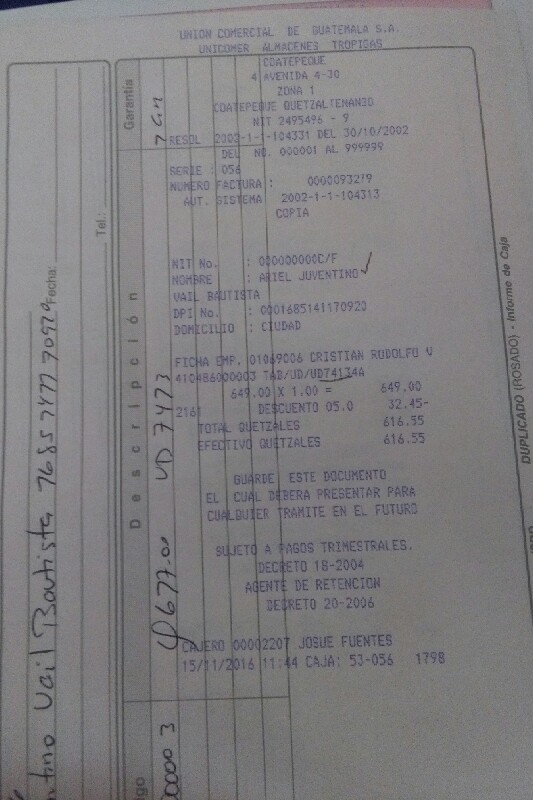 UNION COMERCIAL DE GUATEMALA S.A.
UNICOMER ALMACENES TROPIGAS
COATEPEQUE
4 AVENIDA 4-30
ZONA 1
COATEPEQUE QUETZALTENANGO
NIT 2495496 - 9
RESOL 2002-1-1-104331 DEL 30/10/2002
DEL NO. 000001 AL 999999
SERIE : 056
NUMERO FACTURA : 0000093219
AUT. SISTEMA 2002-1-1-104313
COPIA
NIT No. : 000000000C/F
NOMBRE : ARIEL JUVENTINO
VAIL BAUTISTA
DPI No. : 0001685141170920
DOMICILIO : CIUDAD
FICHA EMP. 01069006 CRISTIAN RODOLFO V
410486000003 TAD/UD/UD74134A
649.00 X 1.00 = 649.00
2161 DESCUENTO 05.0 32.45-
TOTAL QUETZALES 616.55
EFECTIVO QUETZALES 616.55
GUARDE ESTE DOCUMENTO
EL CUAL DEBERA PRESENTAR PARA
CUALQUIER TRAMITE EN EL FUTURO
SUJETO A PAGOS TRIMESTRALES.
DECRETO 18-2004
AGENTE DE RETENCION
DECRETO 20-2006
CAJERO 00002207 JOSUE FUENTES
15/11/2016 11:44 CAJA: 53-056 1798
Garantía
Descripción
Tel.:
Fecha:
Vail Bautista
DUPLICADO (ROSADO) - Informe de Caja